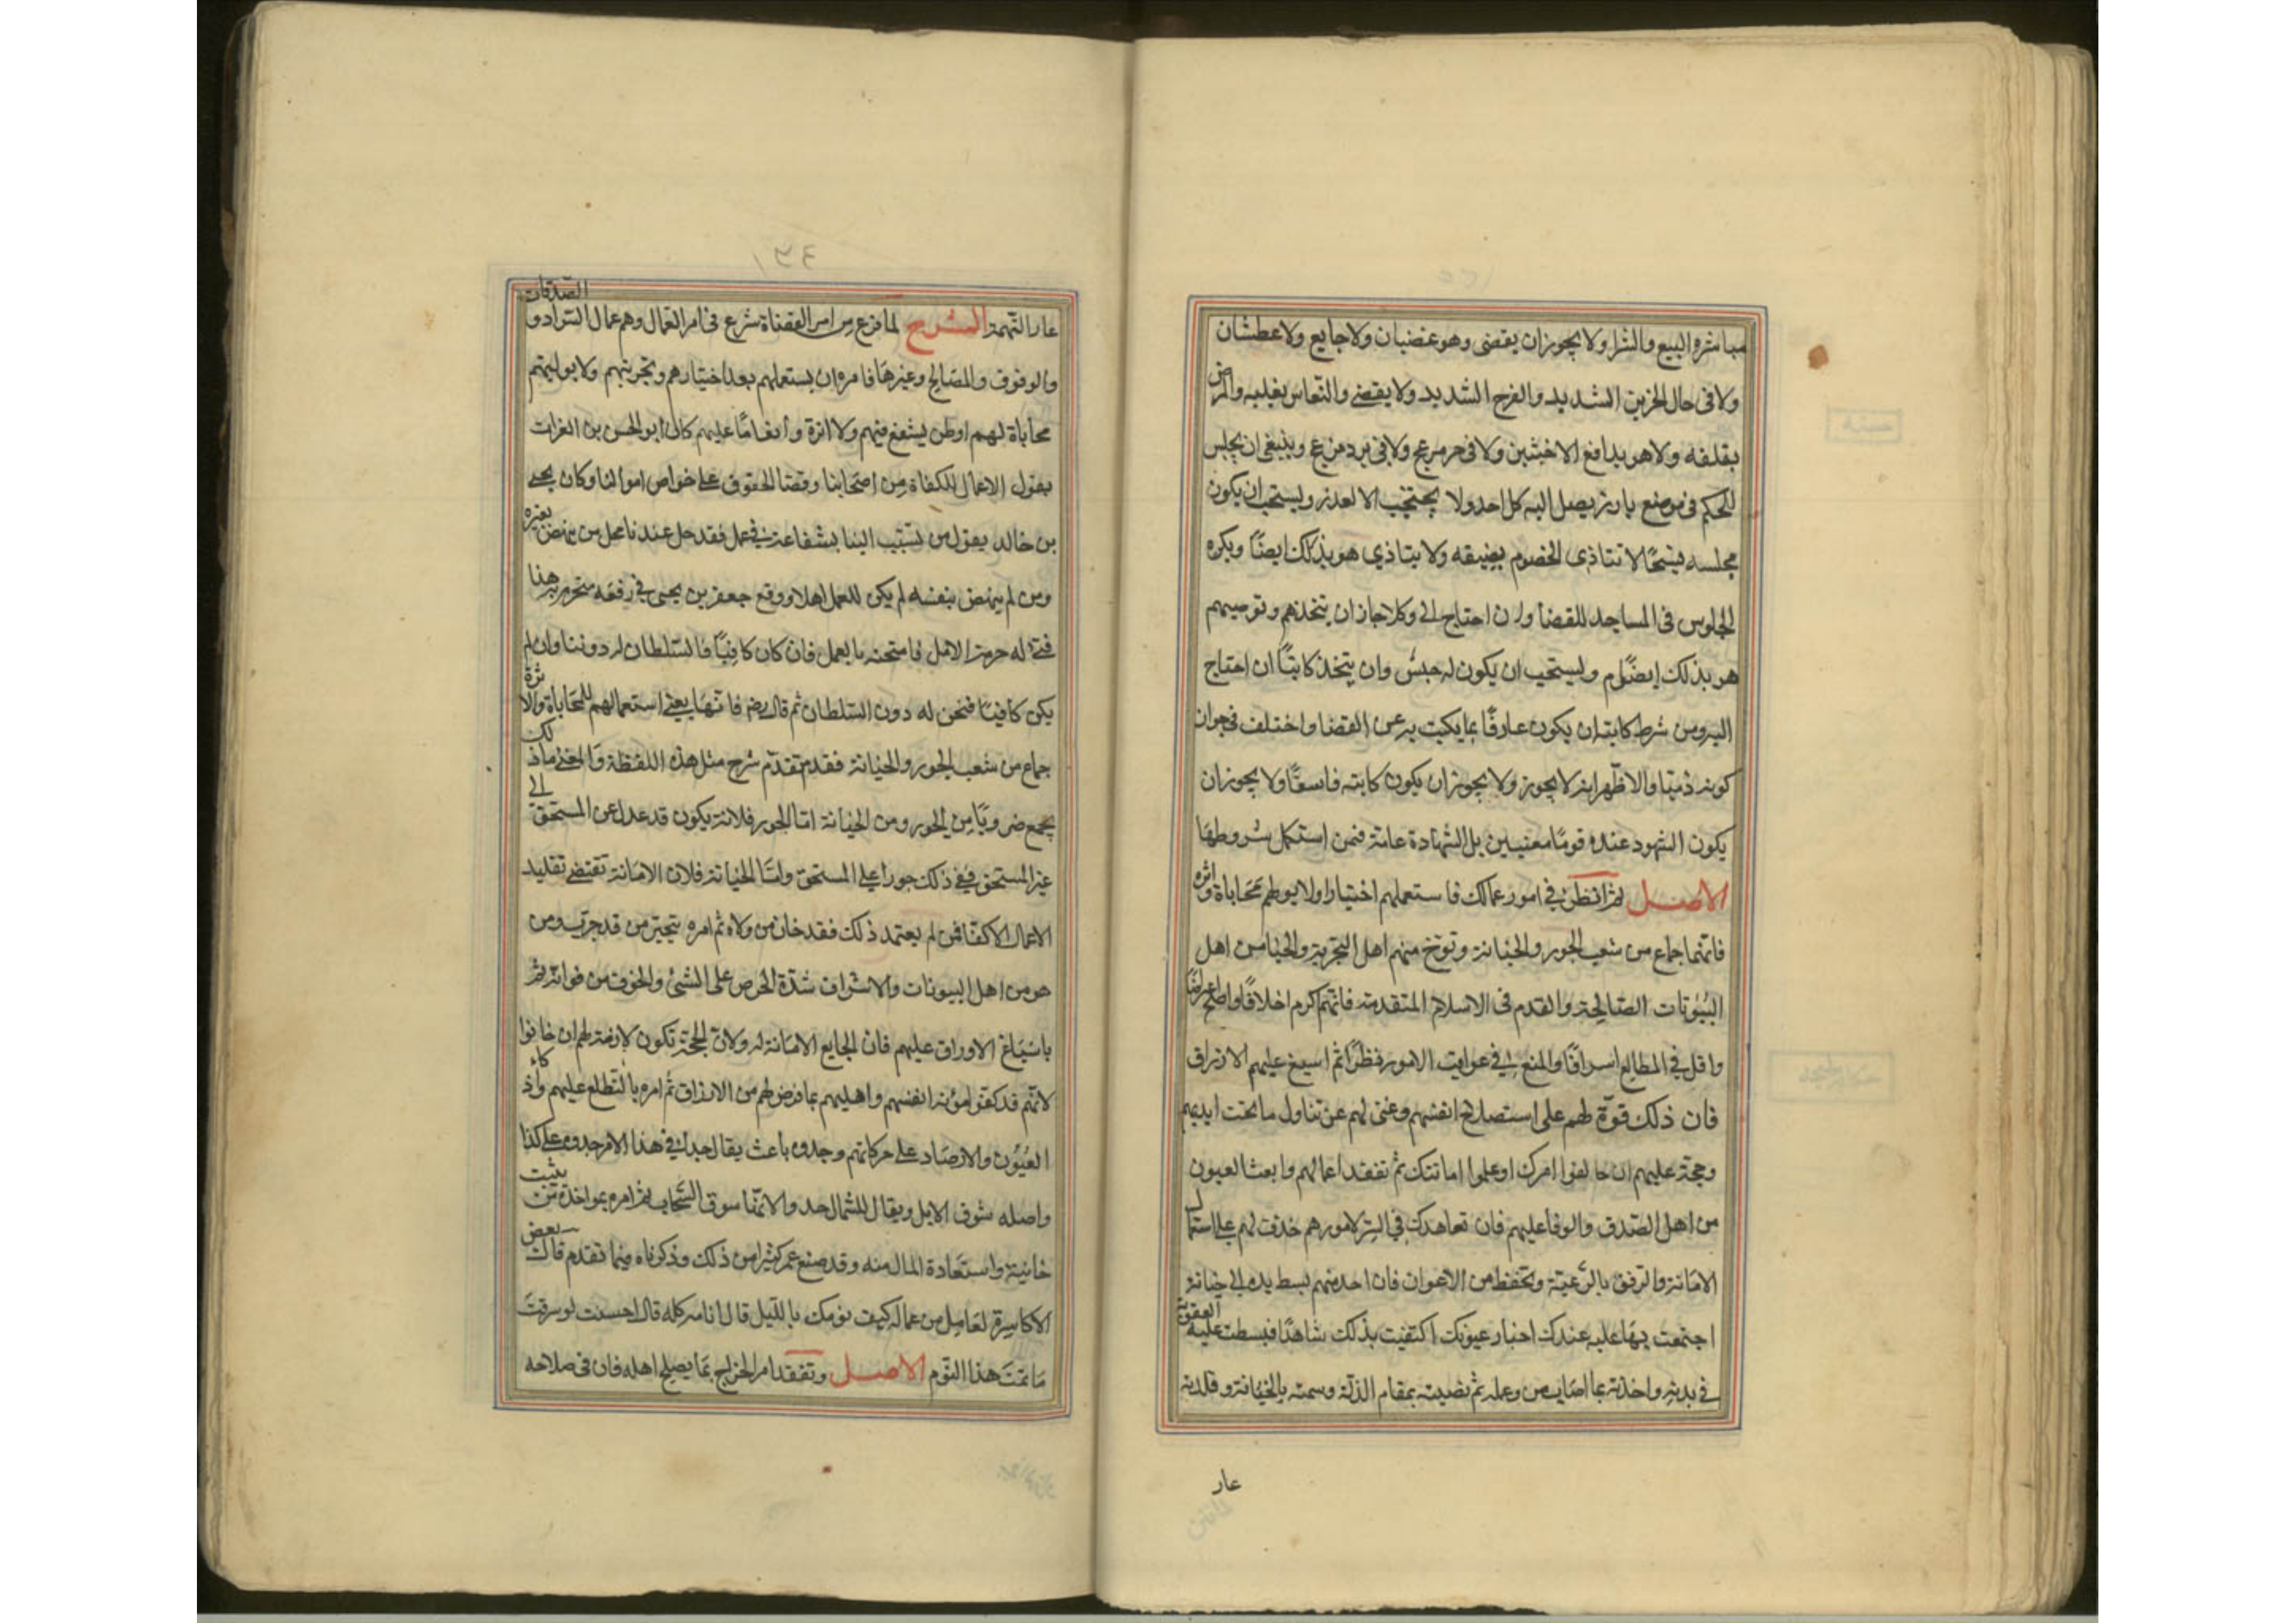 مباشره البيع والشرا ولا يجوز ان يقضى وهو غضبان ولا جايع ولا عطشان
ولا فى حال الحزين الشديد والفرح الشديد ولا يقضى والنعاس يغلبه والمرض
يقلقه ولا هو يدافع الاخبثين ولا فى حر مزعج ولا فى برد مزعج وينبغى ان يجلس
للحكم فى موضع بارز يصل اليه كل احد ولا يحتجب الا لعذر ويستحب ان يكون
مجلسه فسيحًا لا تتاذى الخصوم بضيقه ولا يتاذي هو بذلك ايضًا ويكره
الجلوس فى المساجد للقضا وان احتاج الى وكلا جاز ان يتخذهم ويوصيهم
هو بذلك ايضًا ويستحب ان يكون له حبس وان يتخذ كاتبًا ان احتاج
اليه ومن شرط كاتبه ان يكون عارفًا بما يكتب به عن القضا واختلف فى جواز
كونه ذميا والاظهر انه لا يجوز ولا يجوز ان يكون كاتبه فاسقًا ولا يجوز ان
يكون الشهود عنده قومًا معنيين بل الشهادة عامة فمن استكمل شروطها
الاصل ثم انظر في امور عمالك فاستعملهم اختيارا ولا يولهم محاباة واثره
فانهما جماع من شعب الجور والخيانة وتوخ منهم اهل التجربة والحيا من اهل
البيوتات الصالحة والقدم فى الاسلام المتقدمة فانهم اكرم اخلاقًا واصلح اعراضًا
واقل في المطالع اسرافًا والمنع في عواقب الامور نظرًا ثم اسبغ عليهم الارزاق
فان ذلك قوة لهم على استصلاح انفسهم وغنى لهم عن تناول ما تحت ايديهم
وحجة عليهم ان خالفوا امرك او علموا امانتك ثم تفقد اعمالهم وابعث العيون
من اهل الصدق والوفا عليهم فان تعاهدك في السر لامورهم حذف لهم على استعمال
الامانة والرفق بالرعية وتحفظ من الاعوان فان احد منهم بسط يده الى خيانة
اجتمعت بها عليه عندك اخبار عيونك اكتفيت بذلك شاهدًا فبسطت عليه العقوبة
في بدنه واخذته بما اصاب من وعمله ثم نصبته بمقام الذلة وسمته بالخيانة وقلدته
عار
عار التهمة الشرح لما فرغ من امر القضاة شرع فى امر العمال وهم عمال السواد والصدقات
والوقوف والمصالح وغيرها فامره ان يستعملهم بعد اختيارهم وتجربتهم ولا يوليهم
محاباة لهم اولمن يشفع فيهم ولا اثرة وانعامًا عليهم كان ابو الحسن بن الفرات
يقول الاعمال للكفاة من اصحابنا وقضا الحقوق على خواص اموالنا وكان يحيى
بن خالد يقول من تسبب الينا بشفاعة في عمل فقد حل عندنا محل من ينهض بغيره
ومن لم ينهض بنفسه لم يكن للعمل اهلا ووقع جعفر بن يحيى في رقعة متحرم به هذا
فتى له حرمة الامل فامتحنه بالعمل فان كان كافيًا فالسلطان له دوننا وان لم
يكن كافيًا فنحن له دون السلطان ثم قال رض فانها يعنى استعمالهم للمحاباة والاثرة
جماع من شعب الجور والخيانة فقد تقدم شرح مثل هذه اللفظة والمعنى ان ذلك
يجمع ضروبًا من الجور ومن الخيانة اما الجور فلانه يكون قد عدل عن المستحق الى
غير المستحق ففي ذلك جورا على المستحق واما الخيانة فلان الامانة تقتضى تقليد
الاعمال الاكفا فمن لم يعتمد ذلك فقد خان من ولاه ثم امره بتخير من قد جرب ومن
هو من اهل البيوتات والاشراف شدة الحرص على الشئ والخوف من فواته ثم
باسباغ الاوراق عليهم فان الجايع لا امانة له ولان الحجة تكون لازمة لهم ان خانوا
لانهم قد كفوا مؤنة انفسهم واهليهم بما فرض لهم من الارزاق ثم امره بالتطلع عليهم واذكاء
العيون والارصاد على حركاتهم وحدوه باعث يقال حداني في هذا الامر حدوى على كذا
واصله سوق الابل ويقال للشمال حدوا لانها سوق السحاب ثم امره بمواخذة من يثبت
خانيته واستعادة المال منه وقد صنع عمر كثيرا من ذلك وذكرناه فيما تقدم قال بعض
الاكاسرة لعامل من عماله كيف نومك بالليل قال انامه كله قال احسنت لو سرقت
ما نمت هذا النوم الاصل وتفقد امر الخراج بما يصلح اهله فان فى صلاحه